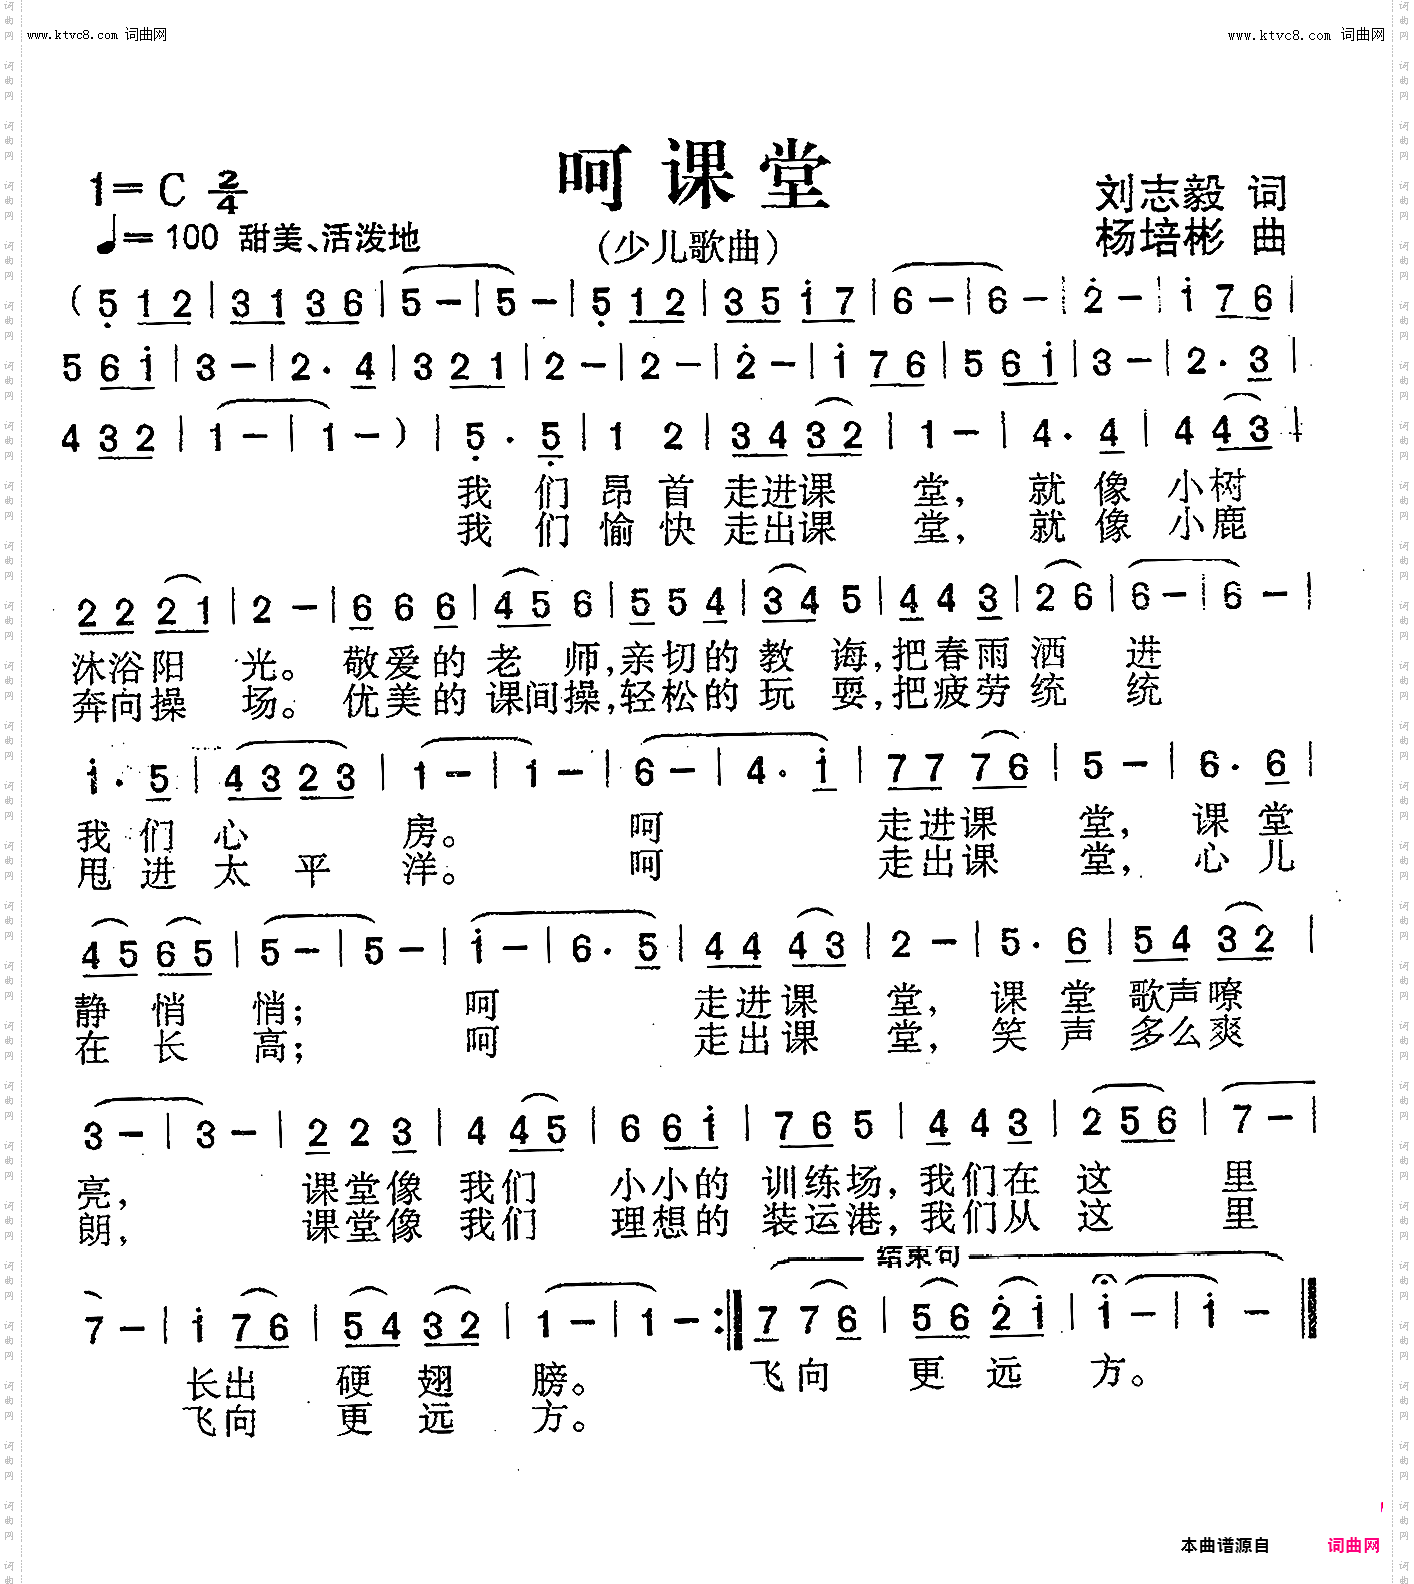 www.ktvc8.com 词曲网
www.ktvc8.com 词曲网
呵课堂
1=C 2/4
刘志毅 词
♩=100 甜美、活泼地
(少儿歌曲)
杨培彬 曲
( 5̣ 1 2 | 3 1 3 6 | 5 - | 5 - | 5̣ 1 2 | 3 5 i 7 | 6 - | 6 - | 2̇ - | i 7 6 |
5 6 i | 3 - | 2· 4 | 3 2 1 | 2 - | 2 - | 2̇ - | i 7 6 | 5 6 i | 3 - | 2· 3 |
4 3 2 | 1 - | 1 - ) | 5̣· 5̣ | 1 2 | 3 4 3 2 | 1 - | 4· 4 | 4 4 3 |
我 们 昂 首 走进课 堂, 就 像 小 树
我 们 愉 快 走出课 堂, 就 像 小 鹿
2 2 2 1 | 2 - | 6 6 6 | 4 5 6 | 5 5 4 | 3 4 5 | 4 4 3 | 2 6 | 6 - | 6 - |
沐浴阳 光。 敬爱的 老 师,亲切的 教 诲,把春雨 洒 进
奔向操 场。 优美的 课间操,轻松的 玩 耍,把疲劳 统 统
i· 5 | 4 3 2 3 | 1 - | 1 - | 6 - | 4· i | 7 7 7 6 | 5 - | 6· 6 |
我 们 心 房。 呵 走进课 堂, 课 堂
甩 进 太 平 洋。 呵 走出课 堂, 心 儿
4 5 6 5 | 5 - | 5 - | i - | 6· 5 | 4 4 4 3 | 2 - | 5· 6 | 5 4 3 2 |
静 悄 悄; 呵 走进课 堂, 课 堂 歌声嘹
在 长 高; 呵 走出课 堂, 笑 声 多么爽
3 - | 3 - | 2 2 3 | 4 4 5 | 6 6 i | 7 6 5 | 4 4 3 | 2 5 6 | 7 - |
亮, 课堂像 我们 小小的 训练场,我们在 这 里
朗, 课堂像 我们 理想的 装运港,我们从 这 里
结束句
7 - | i 7 6 | 5 4 3 2 | 1 - | 1 - :‖ 7 7 6 | 5 6 2̇ i | i - | i - ‖
长出 硬 翅 膀。 飞向 更 远 方。
飞向 更 远 方。
本曲谱源自 词曲网